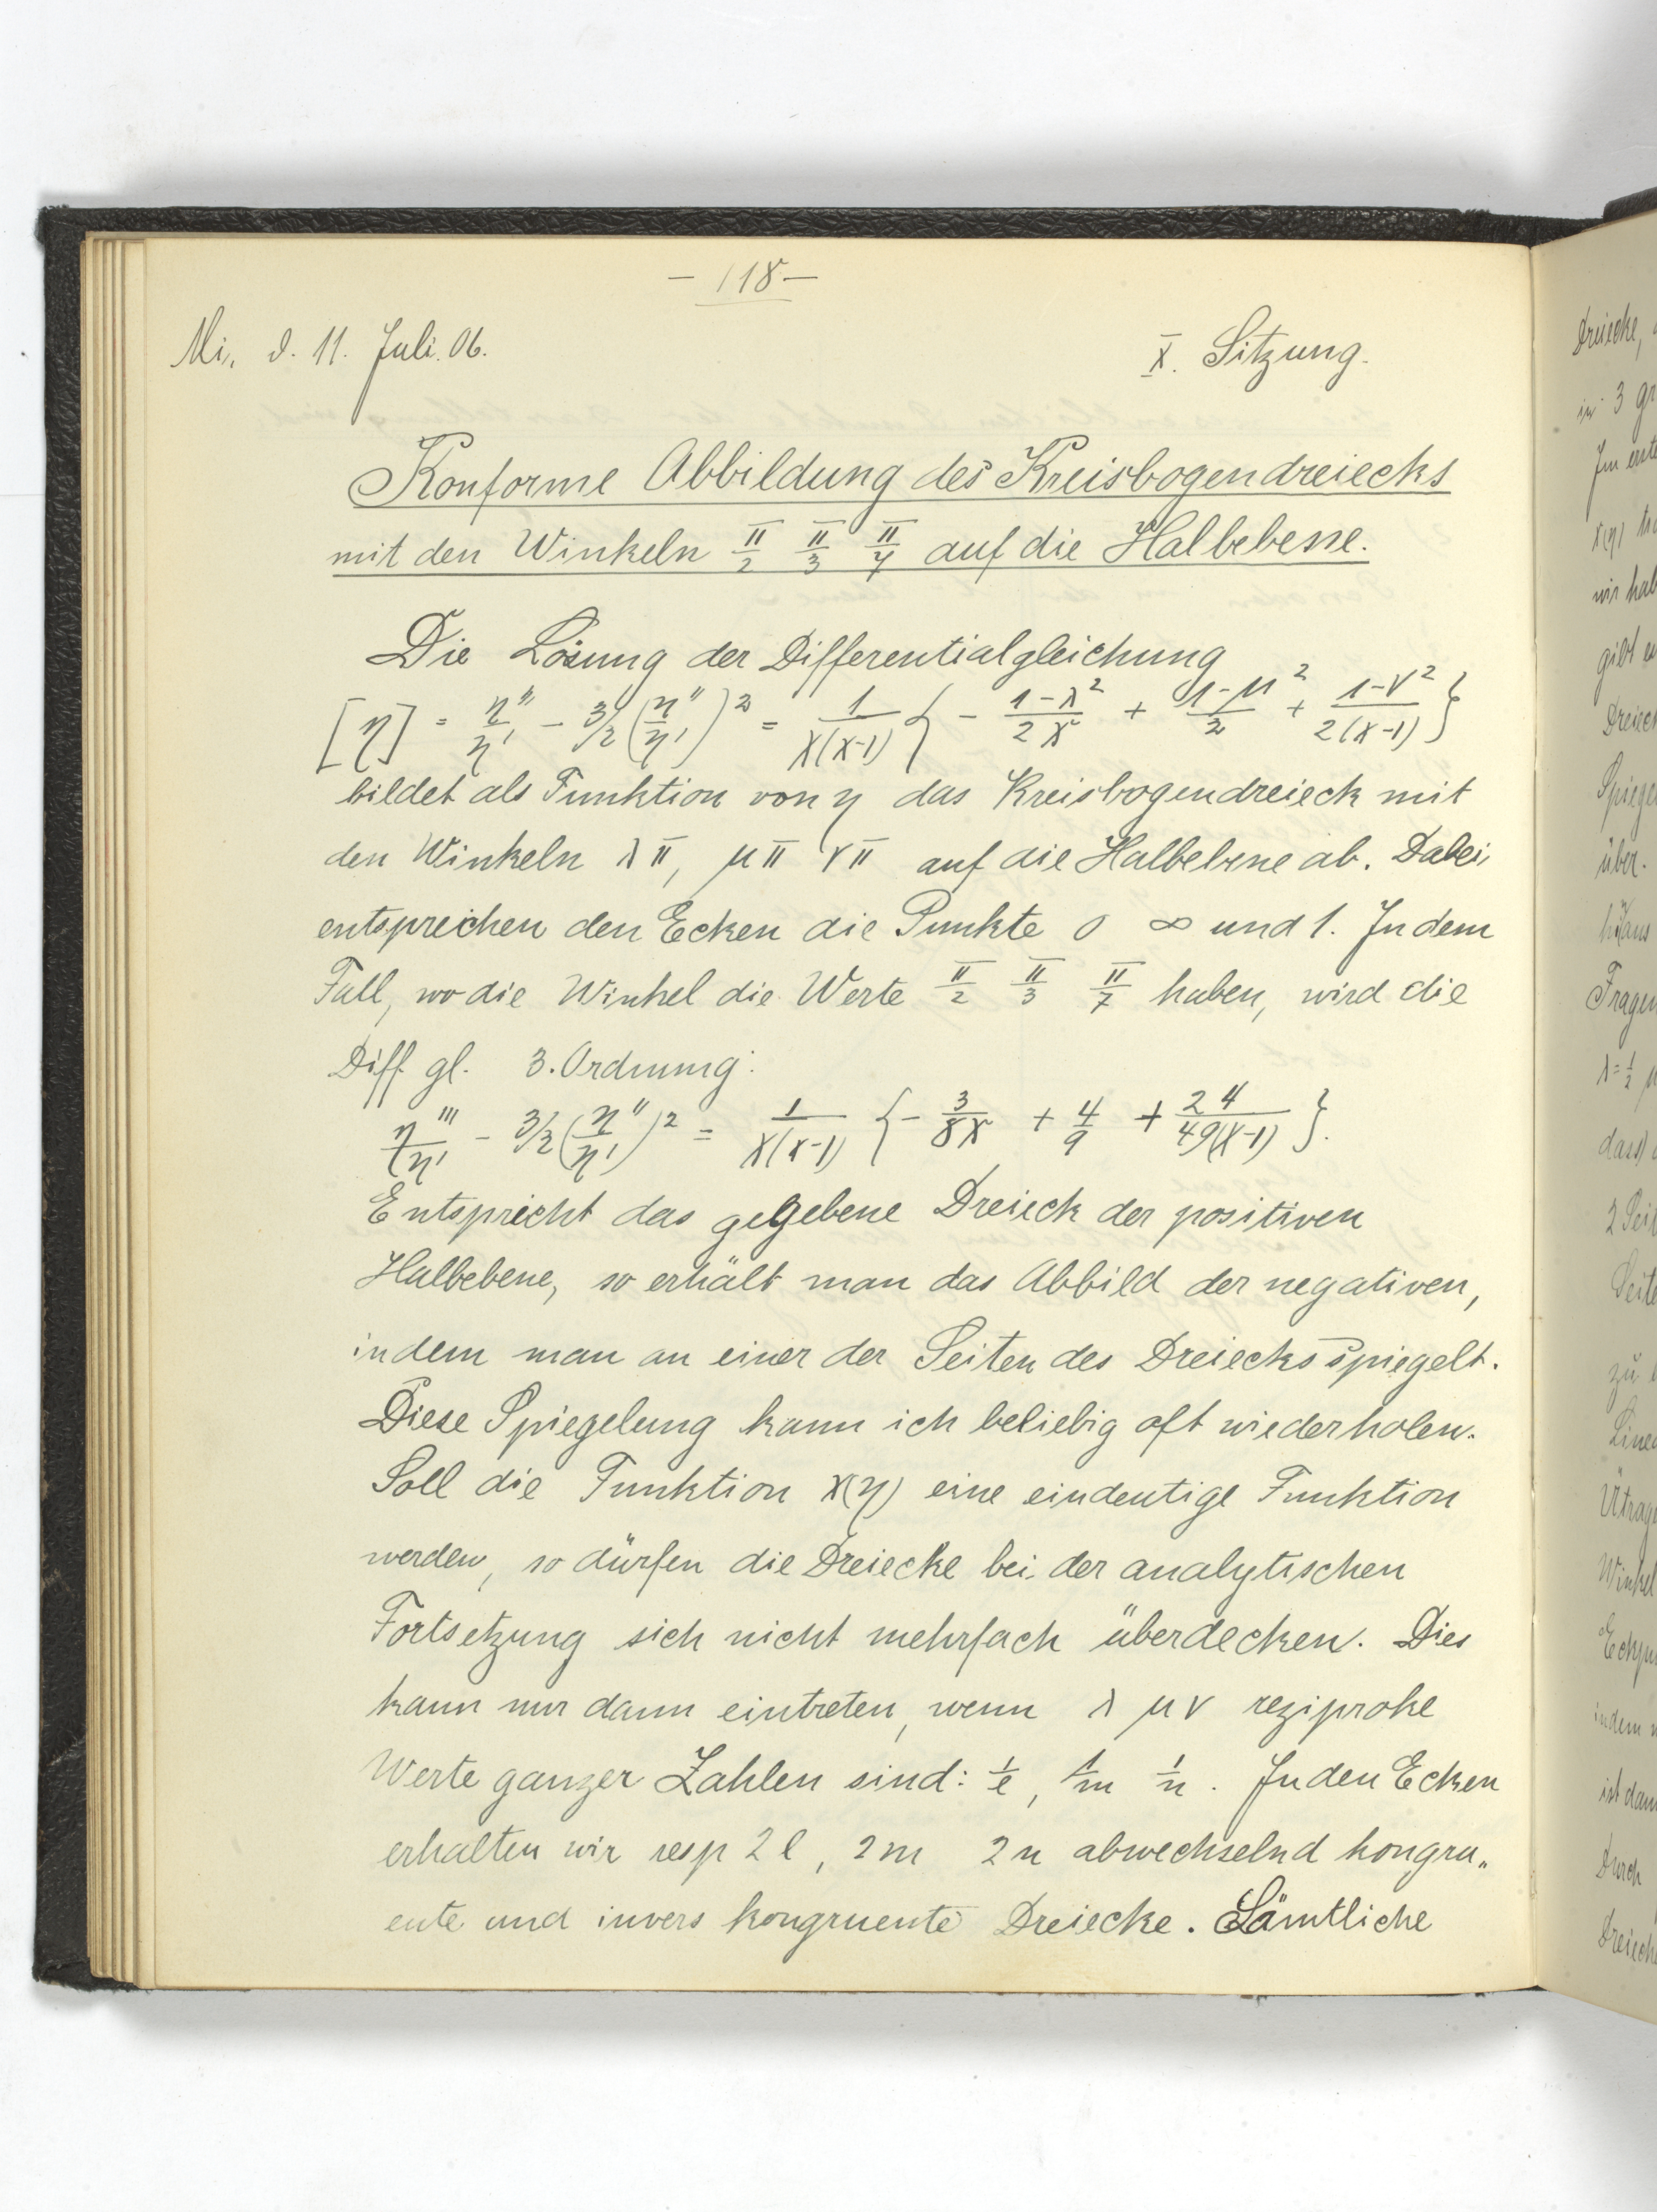 – 118 –
Mi. d. 11. Juli. 06.
X. Sitzung.
Konforme Abbildung des Kreisbogendreiecks
mit den Winkeln π/2 π/3 π/7 auf die Halbebene.
Die Lösung der Differentialgleichung
[η] = η'''/η' − 3/2 (η''/η')² = 1/(x(x-1)) { − (1-λ²)/(2x) + (1-μ²)/2 + (1-ν²)/(2(x-1)) }
bildet als Funktion von η das Kreisbogendreieck mit
den Winkeln λπ, μπ νπ auf die Halbebene ab. Dabei
entsprechen den Ecken die Punkte 0 ∞ und 1. In dem
Fall, wo die Winkel die Werte π/2 π/3 π/7 haben, wird die
Diff. gl. 3. Ordnung:
η'''/η' − 3/2 (η''/η')² = 1/(x(x-1)) { − 3/(8x) + 4/9 + 24/(49(x-1)) }.
Entspricht das gegebene Dreieck der positiven
Halbebene, so erhält man das Abbild der negativen,
indem man an einer der Seiten des Dreiecks spiegelt.
Diese Spiegelung kann ich beliebig oft wiederholen.
Soll die Funktion x(η) eine eindeutige Funktion
werden, so dürfen die Dreiecke bei der analytischen
Fortsetzung sich nicht mehrfach überdecken. Dies
kann nur dann eintreten, wenn λ μ ν reziproke
Werte ganzer Zahlen sind: 1/l, 1/m 1/n. In den Ecken
erhalten wir resp 2l, 2m 2n abwechselnd kongru„
ente und invers kongruente Dreiecke. Sämtliche
Dreiecke,
in 3
über.
Fragen